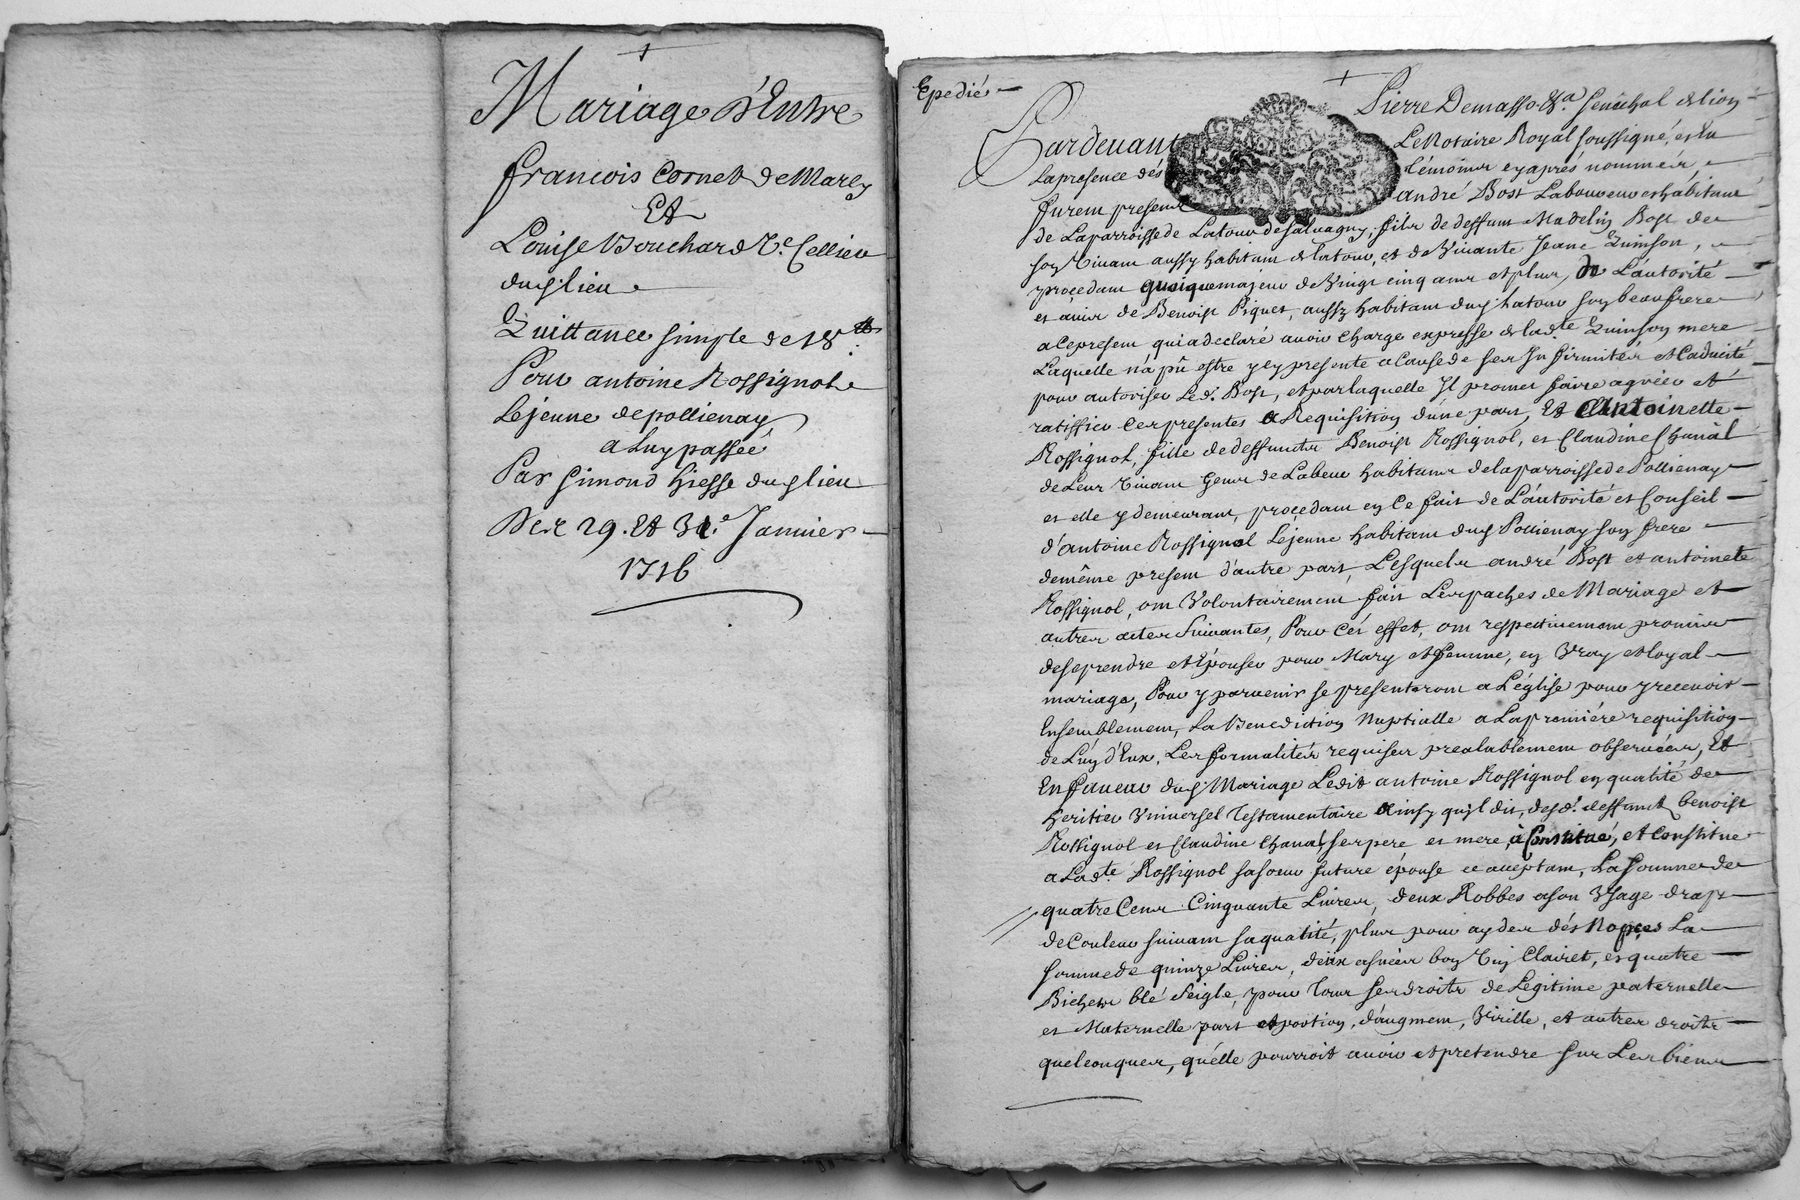 Mariage d'Entre
francois Cornet de Marcy
Et
Louise Bouchard Ve. Cellier
dud lieu
Quittance simple de 18 tt
Pour antoine Rossignol
Lejeune de pollienay
a Luy passée
Par Simond hiesse dud lieu
Des 29. Et 31e. Janvier
1716
Epedié
Pierre Demasso &a. senéchal de lion
Pardevant Le Notaire Royal soussigné, et en
La presence des témoins cy aprés nommés,
furent presens andré Bost Laboureur habitant
de La parroisse de Latour de salvagny, fils de deffunt Madelin Bost de
son vivant aussy habitant de latour, et de vivante Jeane Quinson,
procedant quoique majeur de vingt cinq ans et plus, de L'autorité
et avis de Benoist Piquet, aussy habitant dud. latour son beaufrere
a ce present qui a declaré avoir charge expresse de lade. Quinson mere
Laquelle n'a pû estre ycy presente a Cause de ses Infirmités et Caducité
pour autoriser Led. Bost, et par laquelle Il promet faire agréer et
ratiffier ces presentes a Requisition d'une part, Et Antoinette
Rossignol, fille de deffuncts Benoist Rossignol, et Claudine Chanal
de Leur vivant Gens de Labeur habitans de la parroisse de Pollienay
et elle y demeurant, procedant en Ce fait de L'autorité et Conseil
d'antoine Rossignol Lejeune habitant dud Pollienay son frere
demême present d'autre part, Lesquels andré Bost et antoinete
Rossignol, ont volontairement fait Les paches de Mariage et
autres actes suivantes, Pour Cés effet, ont respectivement promis
de se prendre et Epouser pour Mary et femme, en vray et loyal
mariage, Pour y parvenir se presenteront a L'église pour y recevoir
Ensemblement, La Benediction Nuptialle a La premiére requisition
de L'un d'Eux, Les formalités requises prealablement observées, Et
En faveur dud Mariage Ledit antoine Rossignol en qualité de
heritier Universel testamentaire Ainsy qu'jl dit, desd. deffunct Benoist
Rossignol et Claudine Chanal, ses pere et mere, à Constitué, et Constitue
a Lade. Rossignol sa soeur future épouse ce acceptant, La somme de
quatre Cens Cinquante Livres, deux Robbes a son Usage drap
de Couleur suivant sa qualité, plus pour ayder dés Nopces La
somme de quinze Livres, deux asnées bon vin Clairet, et quatre
Bichets blé seigle, pour tous ses droits de Legitime paternelle
et Maternelle part et portion, d'augment, virille, et autres droits
quelconques, qu'elle pourroit avoir et pretendre sur Les biens